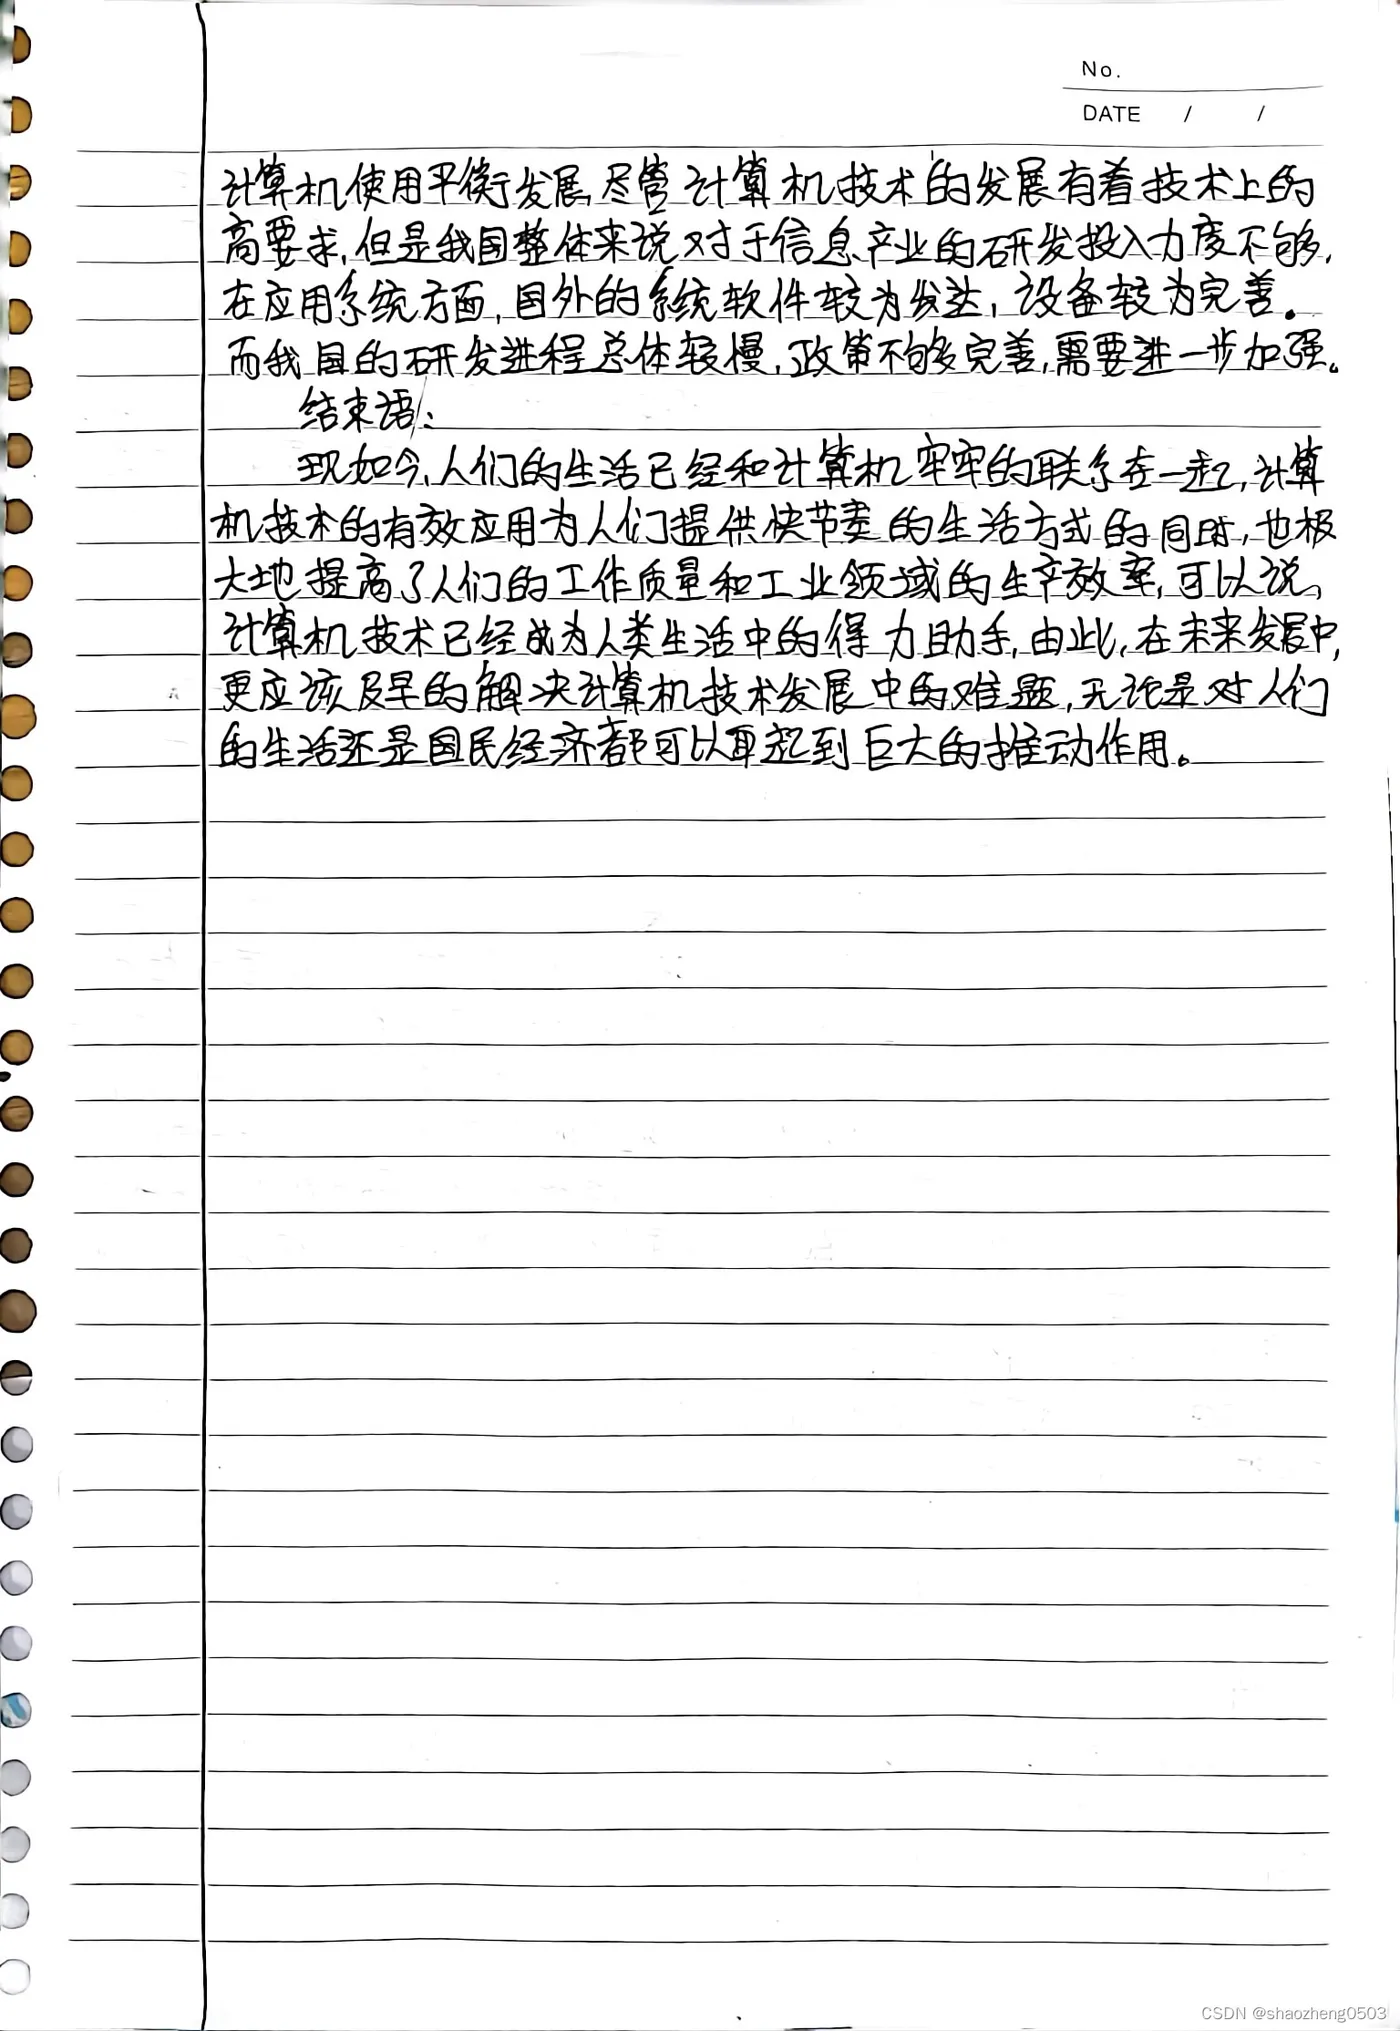 No.
DATE / /
计算机使用平衡发展,尽管计算机技术的发展有着技术上的
高要求,但是我国整体来说对于信息产业的研发投入力度不够,
在应用系统方面,国外的系统软件较为发达,设备较为完善。
而我国的研发进程总体较慢,政策不够完善,需要进一步加强。
结束语:
现如今,人们的生活已经和计算机牢牢的联系在一起,计算
机技术的有效应用为人们提供快节奏的生活方式的同时,也极
大地提高了人们的工作质量和工业领域的生产效率,可以说,
计算机技术已经成为人类生活中的得力助手,由此,在未来发展中,
更应该及早的解决计算机技术发展中的难题,无论是对人们
的生活还是国民经济都可以再起到巨大的推动作用。
CSDN @shaozheng0503